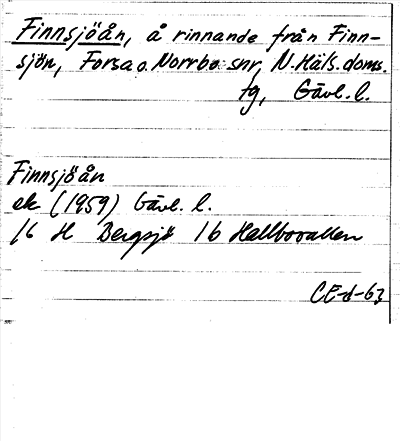 Finnsjöån, å rinnande från Finn-
sjön, Forsa o. Norrbo snr, N. Häls. doms.
fg, Gävl. l.
Finnsjöån
ek (1959) Gävl. l.
16 H Bergsjö 1b Hallbovallen
CE-d-63